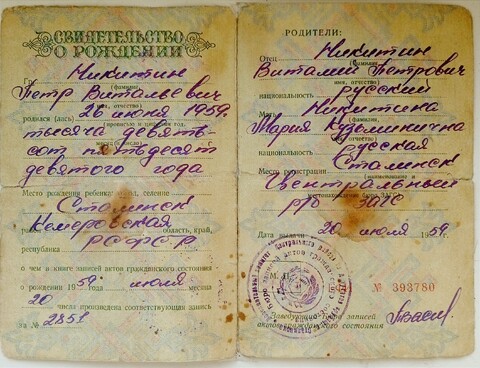 СВИДЕТЕЛЬСТВО
О РОЖДЕНИИ
Гр. Никитин
(фамилия)
Петр Витальевич
имя, отчество)
родился (лась) 26 июня 1959г.
тысяча девять-
сот пятьдесят
девятого года
Место рождения ребенка: город, селение
Сталинск
Кемеровская
область, край,
республика РСФСР
о чем в книге записей актов гражданского состояния
о рождении 1959 года июля месяца
20 числа произведена соответствующая запись
за № 2851
РОДИТЕЛИ:
Отец Никитин
(фамилия,
Виталий Петрович
имя, отчество)
национальность русский
Мать Никитина
(фамилия,
Мария Кузьминична
имя, отчество)
национальность русская
Место регистрации Сталинск
(наименование и
Центральный
местонахождение
р/б ЗАГС
Дата выдачи 20 июля 1959г.
М. П.
№ 393780
Заведующий бюро записей
актов гражданского состояния